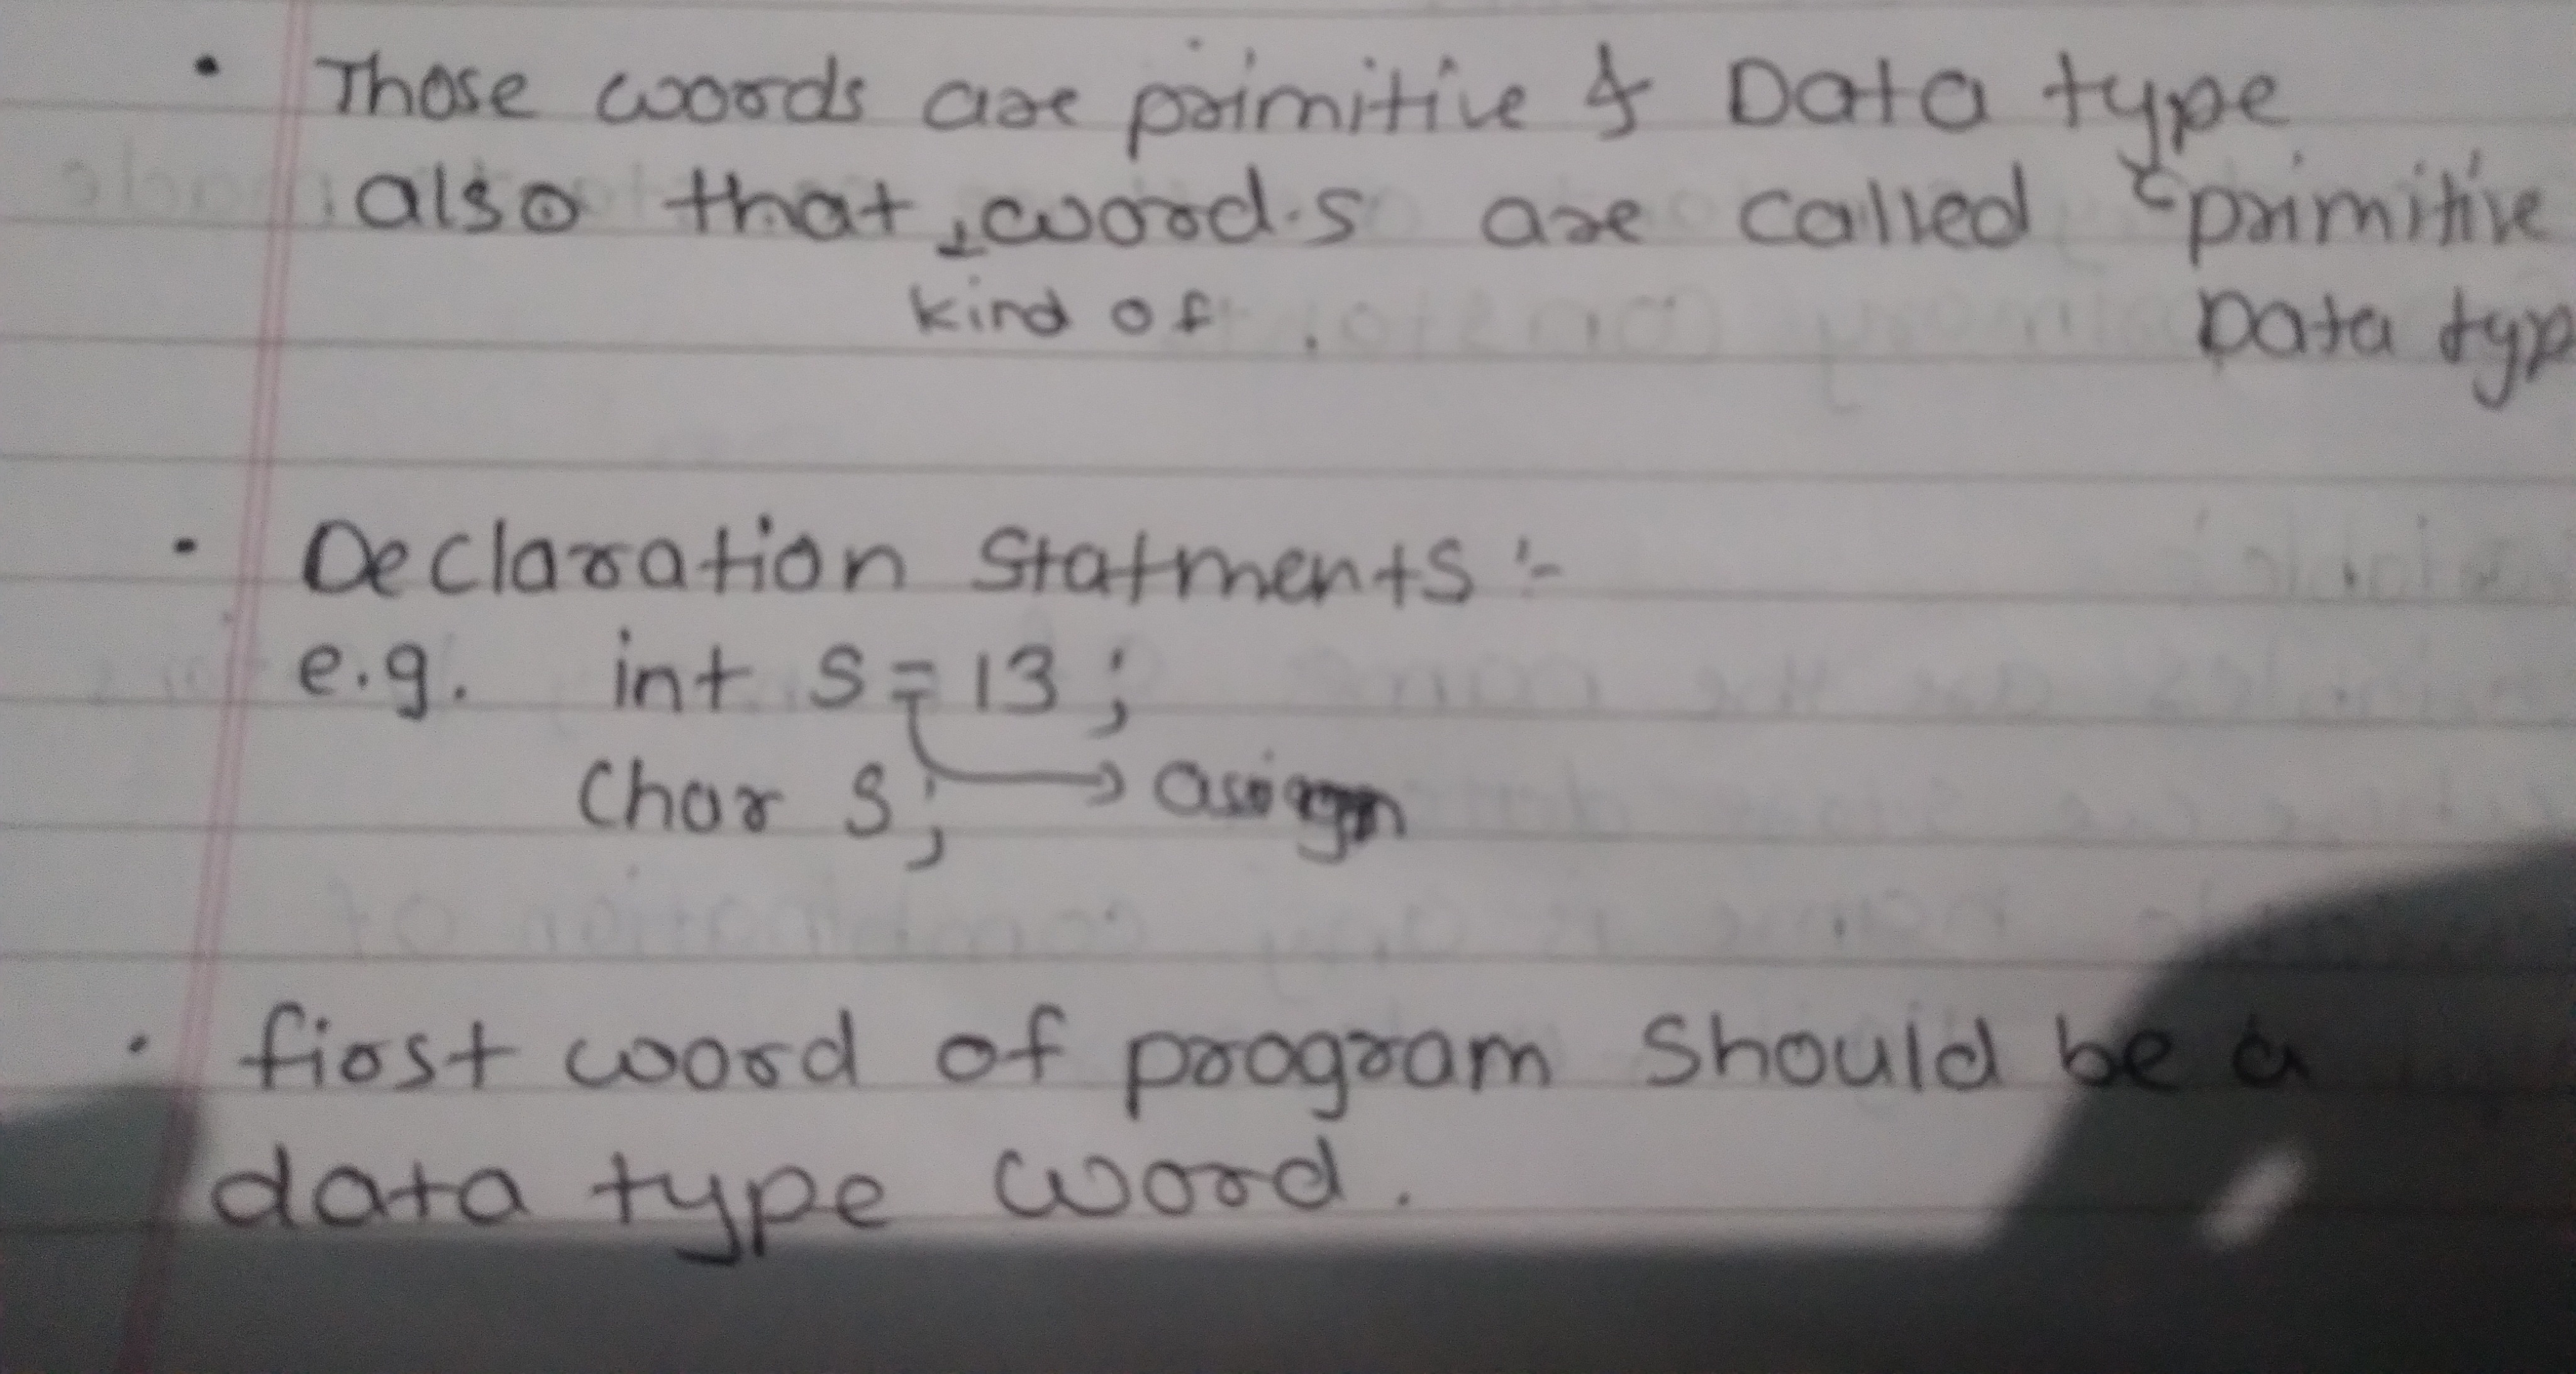 • Those words are primitive & Data type
also that words are called "primitive
kind of Data typ
• Declaration Statments :-
e.g. int S = 13 ;
Char S; → asign
• first word of program Should be a
data type word.